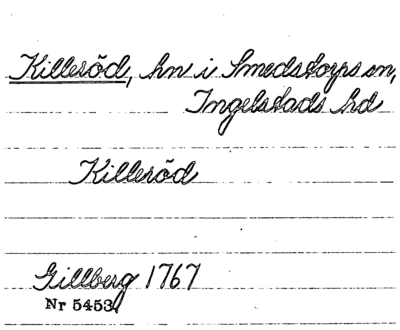 Killeröd, hn i Smedstorps sn,
Ingelstads hd
Killeröd
Gillberg 1767
Nr 5453